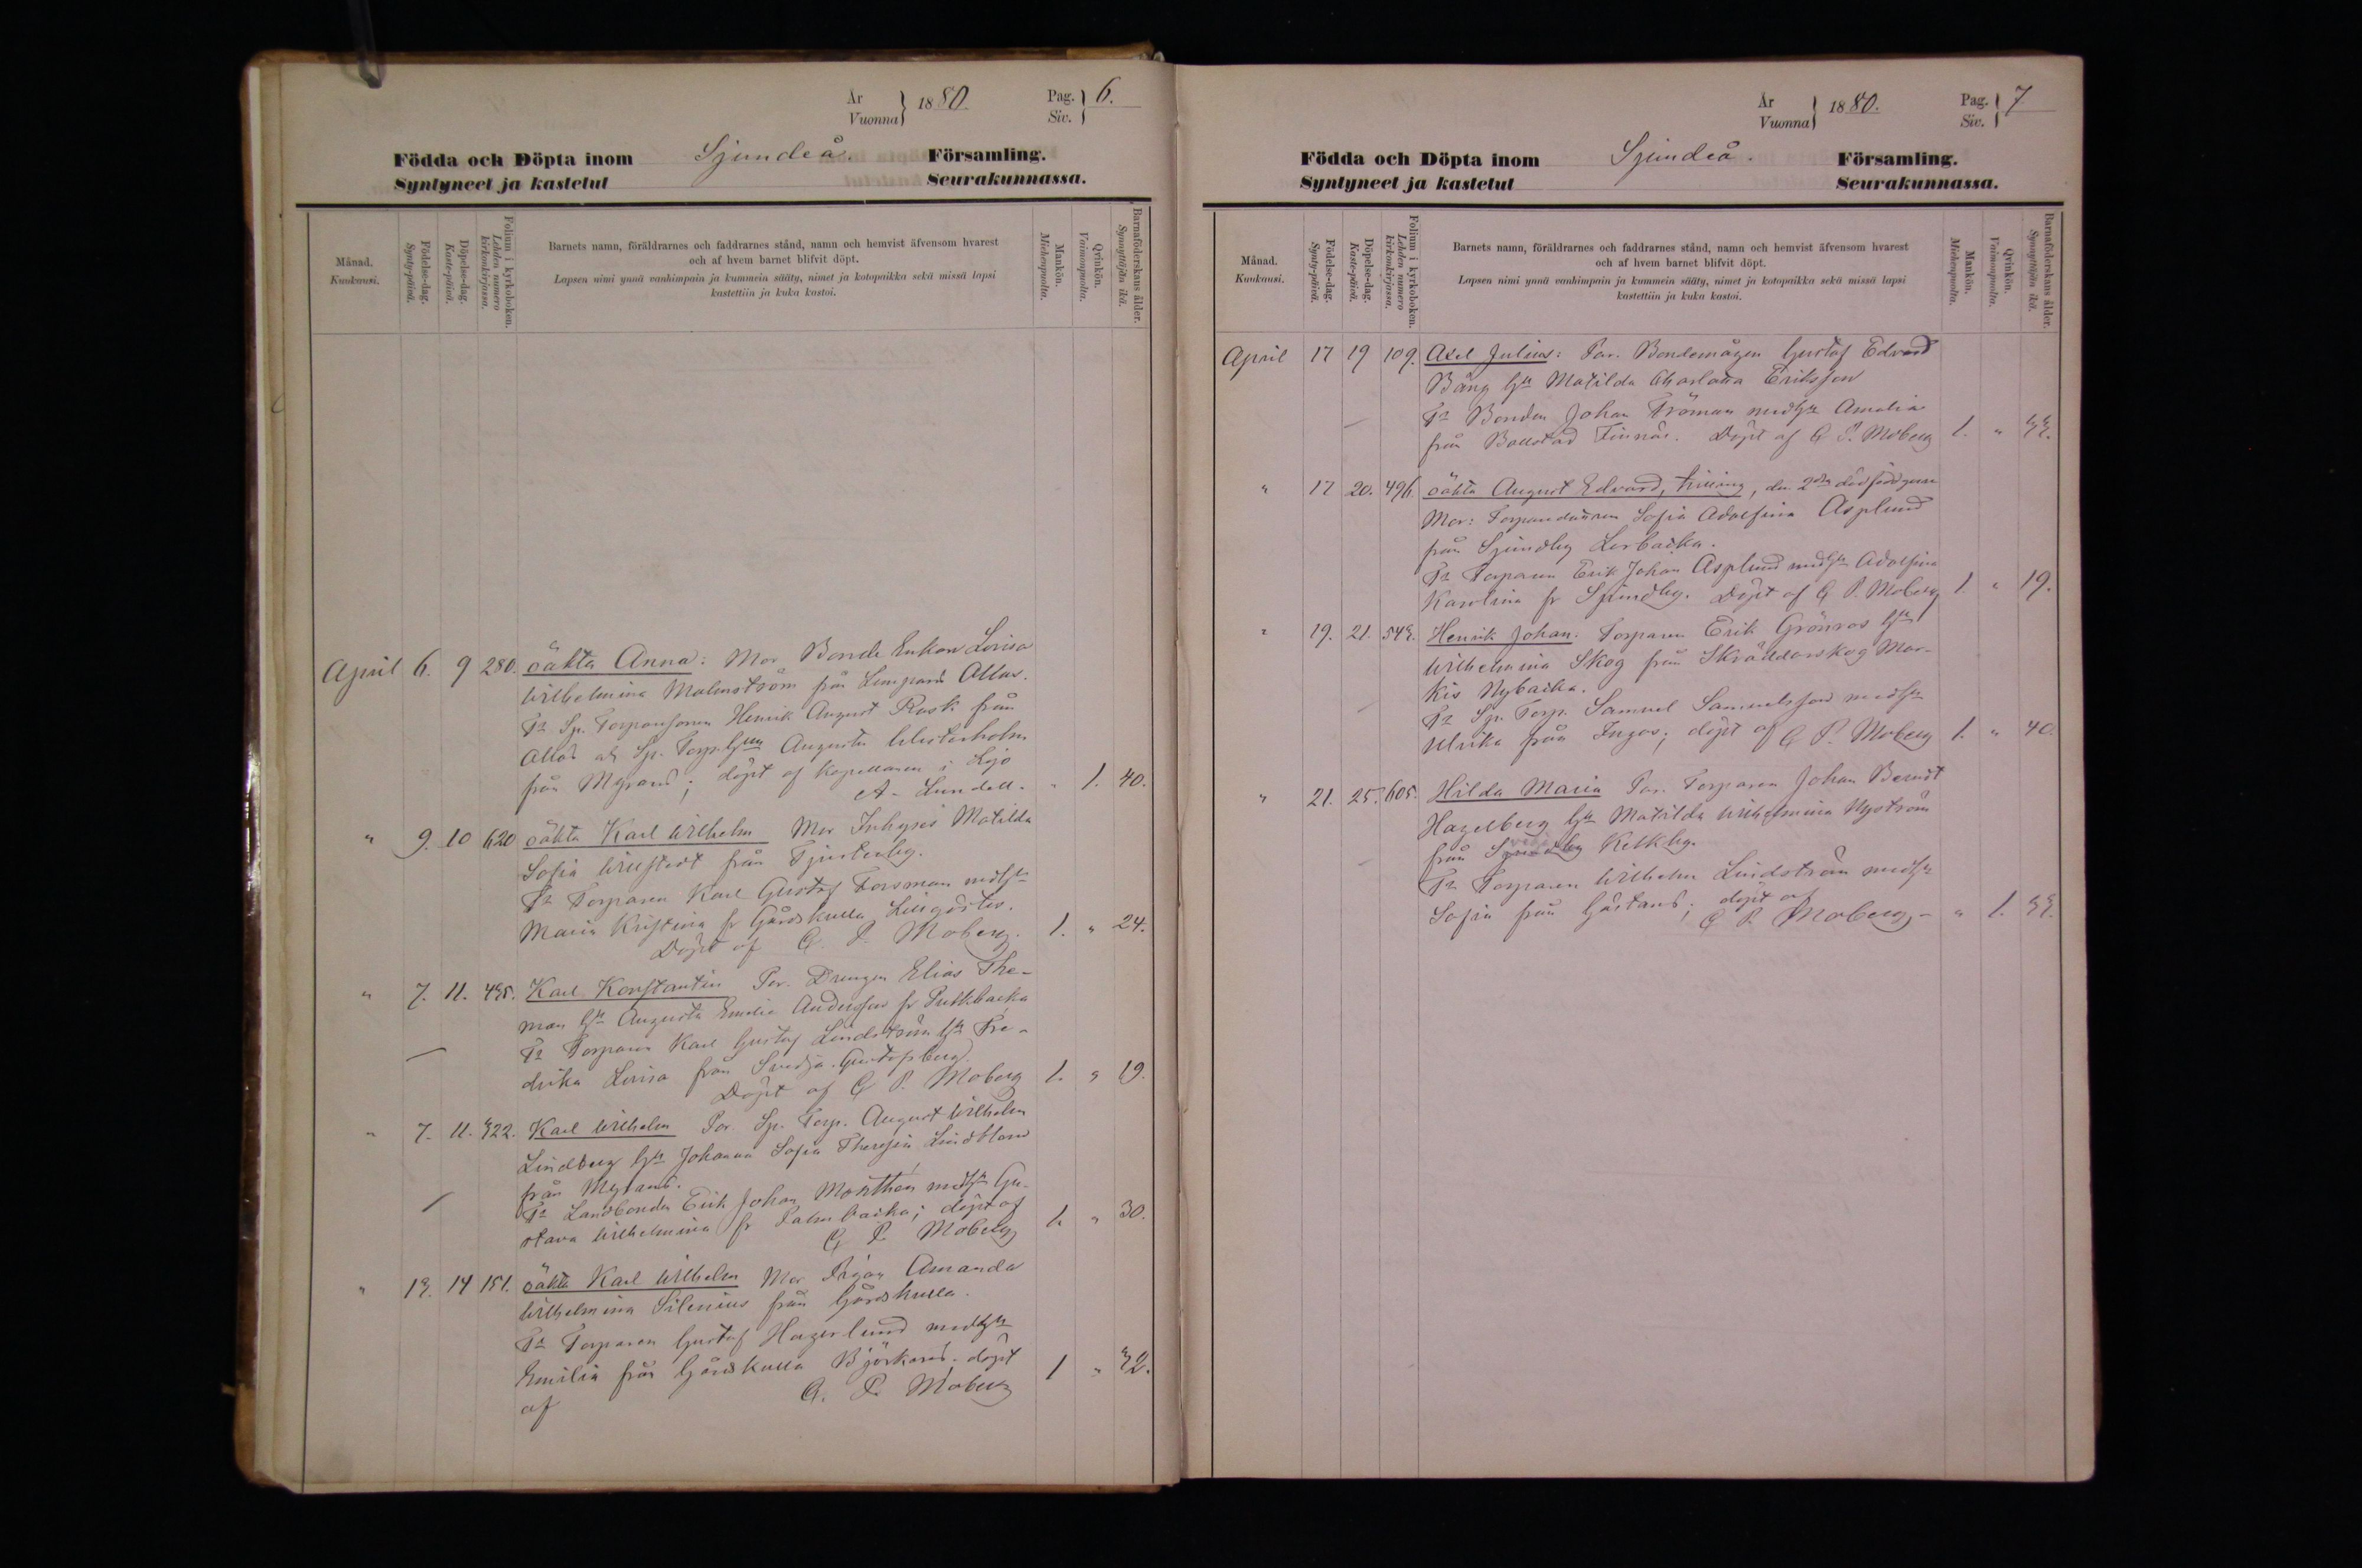 År
Vuonna
1880.
Pag.
Siv.
6.
Födda och Döpta inom Sjundeå. Församling.
Syntyneet ja kastetut Seurakunnassa.
Månad.
Kuukausi.
Födelse-dag.
Synty-päivä.
Döpelse-dag.
Kaste-päivä.
Folium i kyrkoboken.
Lehden numero kirkonkirjassa.
Barnets namn, föräldrarnes och faddrarnes stånd, namn och hemvist äfvensom hvarest
och af hvem barnet blifvit döpt.
Lapsen nimi ynnä vanhimpain ja kummein sääty, nimet ja kotopaikka sekä missä lapsi
kastettiin ja kuka kastoi.
Mankön.
Miehenpuolta.
Qvinkön.
Vaimonpuolta.
Barnaföderskans ålder.
Synnyttäjän ikä.
April 6. 9 280. oäkta Anna: Mor Bonde Enkan Lovisa
Wilhelmina Malmström från Lempans Allas.
Fr Sp. Torparsonen Henrik August Rask från
Allas och Sp. Torp. Augusta Westerholm
från Myrans; döpt af Kapellanen i Lojo
A. Lundell. " 1. 40.
" 9. 10 620 oäkta Karl Wilhelm Mor Inhyses Matilda
Sofia från Tjusterby.
Fr Torparen Karl Gustaf Forsman med Hu
Maria Kristina fr Gårdskulla Lillgårds.
Döpt af G. P. Moberg. 1. " 24.
" 7. 11. 435. Karl Konstantin Par. Drengen Elias The-
man Hu Augusta Emilia Andersson fr Puttbacka
Fr Torparen Karl Gustaf Lindström Hu Fre-
drika Lovisa från Svidja Gustafsberg.
Döpt af G P. Moberg 1. " 19.
" 7. 11. 322. Karl Wilhelm Par. Sp. Torp. August Wilhelm
Lindberg Hu Johanna Sofia Theresia Lindblom
från Myrans.
Fr Landbonden Erik Johan Morthen med Hu Gu-
stava Wilhelmina fr Palmbacka; döpt af
G P. Moberg 1. " 30.
" 13. 14 151. oäkta Karl Wilhelm Mor Pigan Amanda
Wilhelmina Silenius från Gårdskulla.
Fr Torparen Gustaf Hagerlund med Hu
Emilia från Gårdskulla Björkans. döpt
af G. P. Moberg 1 " 32.
År
Vuonna
1880.
Pag.
Siv.
7
Födda och Döpta inom Sjundeå. Församling.
Syntyneet ja kastetut Seurakunnassa.
Månad.
Kuukausi.
Födelse-dag.
Synty-päivä.
Döpelse-dag.
Kaste-päivä.
Folium i kyrkoboken.
Lehden numero kirkonkirjassa.
Barnets namn, föräldrarnes och faddrarnes stånd, namn och hemvist äfvensom hvarest
och af hvem barnet blifvit döpt.
Lapsen nimi ynnä vanhimpain ja kummein sääty, nimet ja kotopaikka sekä missä lapsi
kastettiin ja kuka kastoi.
Mankön.
Miehenpuolta.
Qvinkön.
Vaimonpuolta.
Barnaföderskans ålder.
Synnyttäjän ikä.
April 17 19 109. Axel Julius: Par. Bondemågen Gustaf Edvard
Bäng Hu Matilda Charlotta Eriksson
Fr Bonden Johan Fröman med Hu Amalia
från Bollstad Finnäs. Döpt af G P. Moberg 1. " 33.
" 17 20. 496. oäkta August Edvard, tvilling, den 2dra dödfödd gosse
Mor: Torparedottren Sofia Adolfina Asplund
från Sjundby Lerbacka.
Fr Torparen Erik Johan Asplund med Hu Adolfina
Karolina fr Sjundby. Döpt af G P. Moberg 1. " 19.
" 19. 21. 543. Henrik Johan: Torparen Erik Grönroos Hu
Wilhelmina Skog från Skräddarskog Mar-
kis Nybacka.
Fr Sp. Torp. Samuel Samuelsson med Hu
Ulrika från Ingos; döpt af G P. Moberg 1. " 40.
" 21. 25. 605. Hilda Maria Par. Torparen Johan Berndt
Hagelberg Hu Matilda Wilhelmina Nyström
från Kelkby.
Fr Torparen Wilhelm Lindström med Hu
Sofia från Gårstans; döpt af
G P. Moberg. " 1. 33.